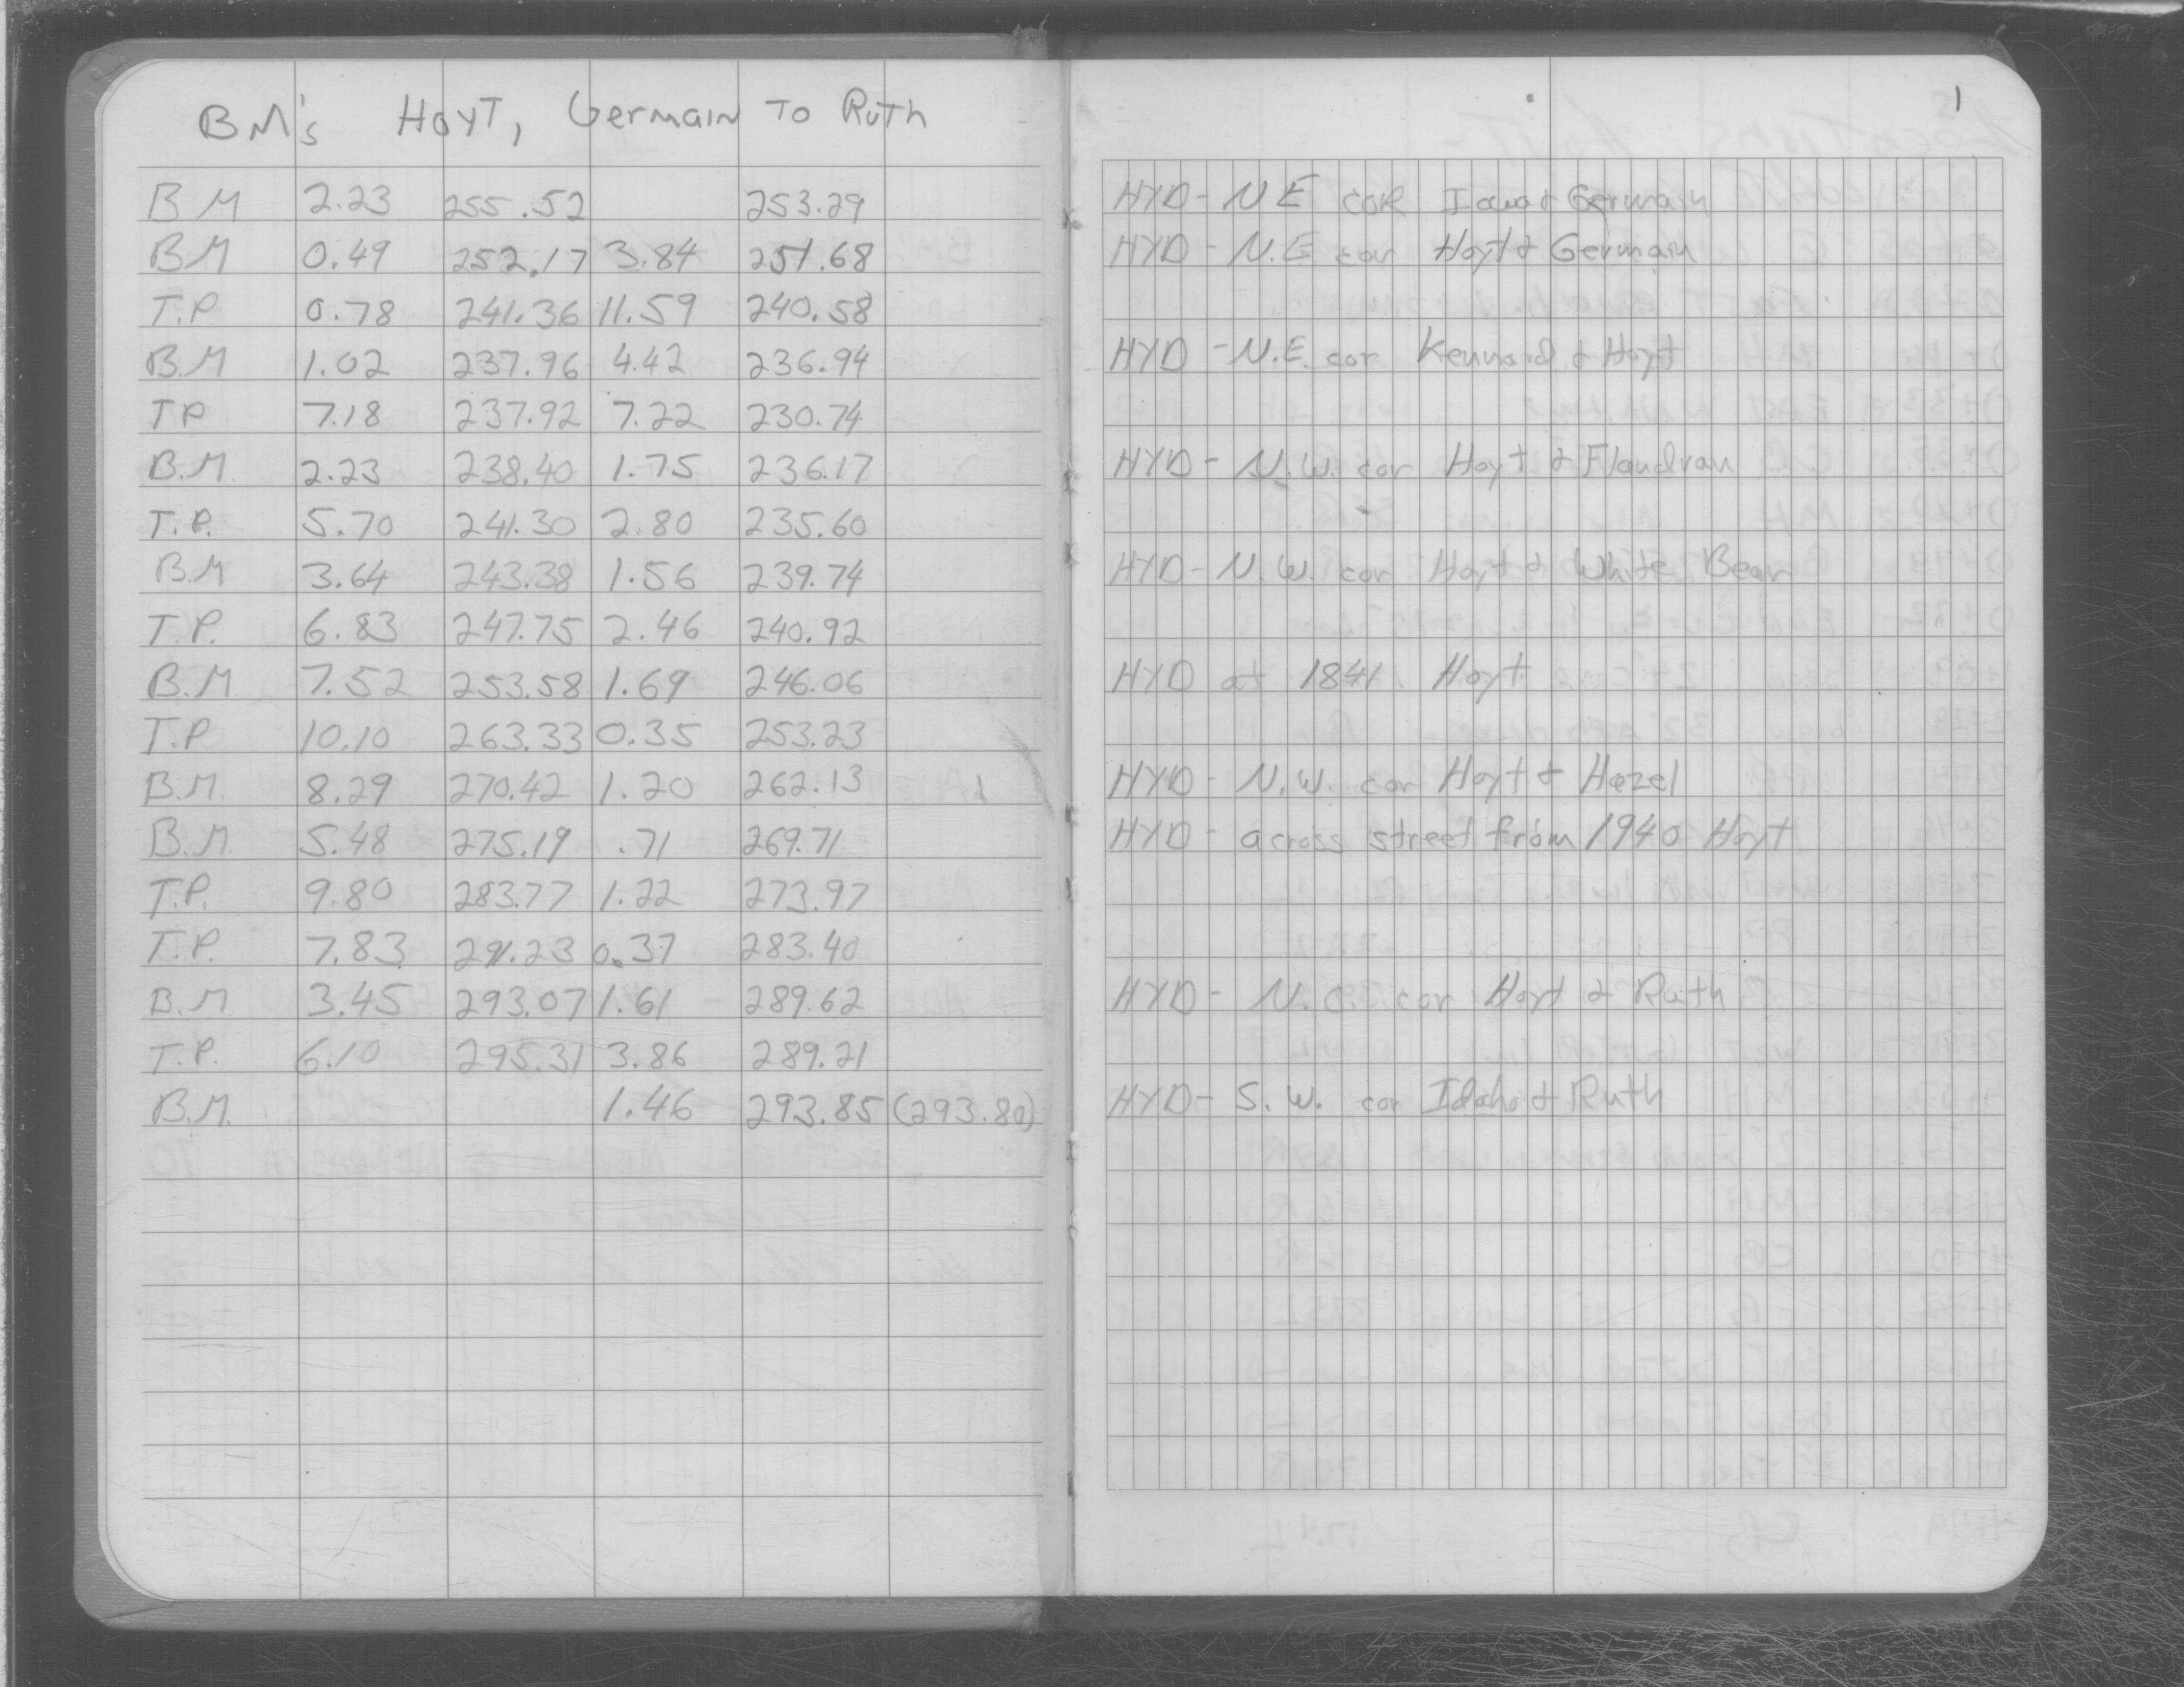 BM's Hoyt, Germain to Ruth
1
BM 2.23 255.52 253.29 HYD - N E cor Iowa & Germain
BM 0.49 252.17 3.84 251.68 HYD - N.E cor Hoyt & Germain
T.P 0.78 241.36 11.59 240.58
B.M 1.02 237.96 4.42 236.94 HYD - N.E. cor Kennard & Hoyt
TP 7.18 237.92 7.22 230.74
B.M. 2.23 238.40 1.75 236.17 HYD - N.W. cor Hoyt & Flandrau
T.P. 5.70 241.30 2.80 235.60
B.M 3.64 243.38 1.56 239.74 HYD - N.W. cor Hoyt & White Bear
T.P. 6.83 247.75 2.46 240.92
B.M. 7.52 253.58 1.69 246.06 HYD at 1841 Hoyt
T.P 10.10 263.33 0.35 253.23
B.M. 8.29 270.42 1.20 262.13 HYD - N.W. cor Hoyt & Hazel
B.M. 5.48 275.19 .71 269.71 HYD - across street from 1940 Hoyt
T.P. 9.80 283.77 1.22 273.97
T.P. 7.83 291.23 0.37 283.40
B.M. 3.45 293.07 1.61 289.62 HYD - N. cor Hoyt & Ruth
T.P. 6.10 295.31 3.86 289.21
B.M. 1.46 293.85 (293.80) HYD - S.W. cor Idaho & Ruth